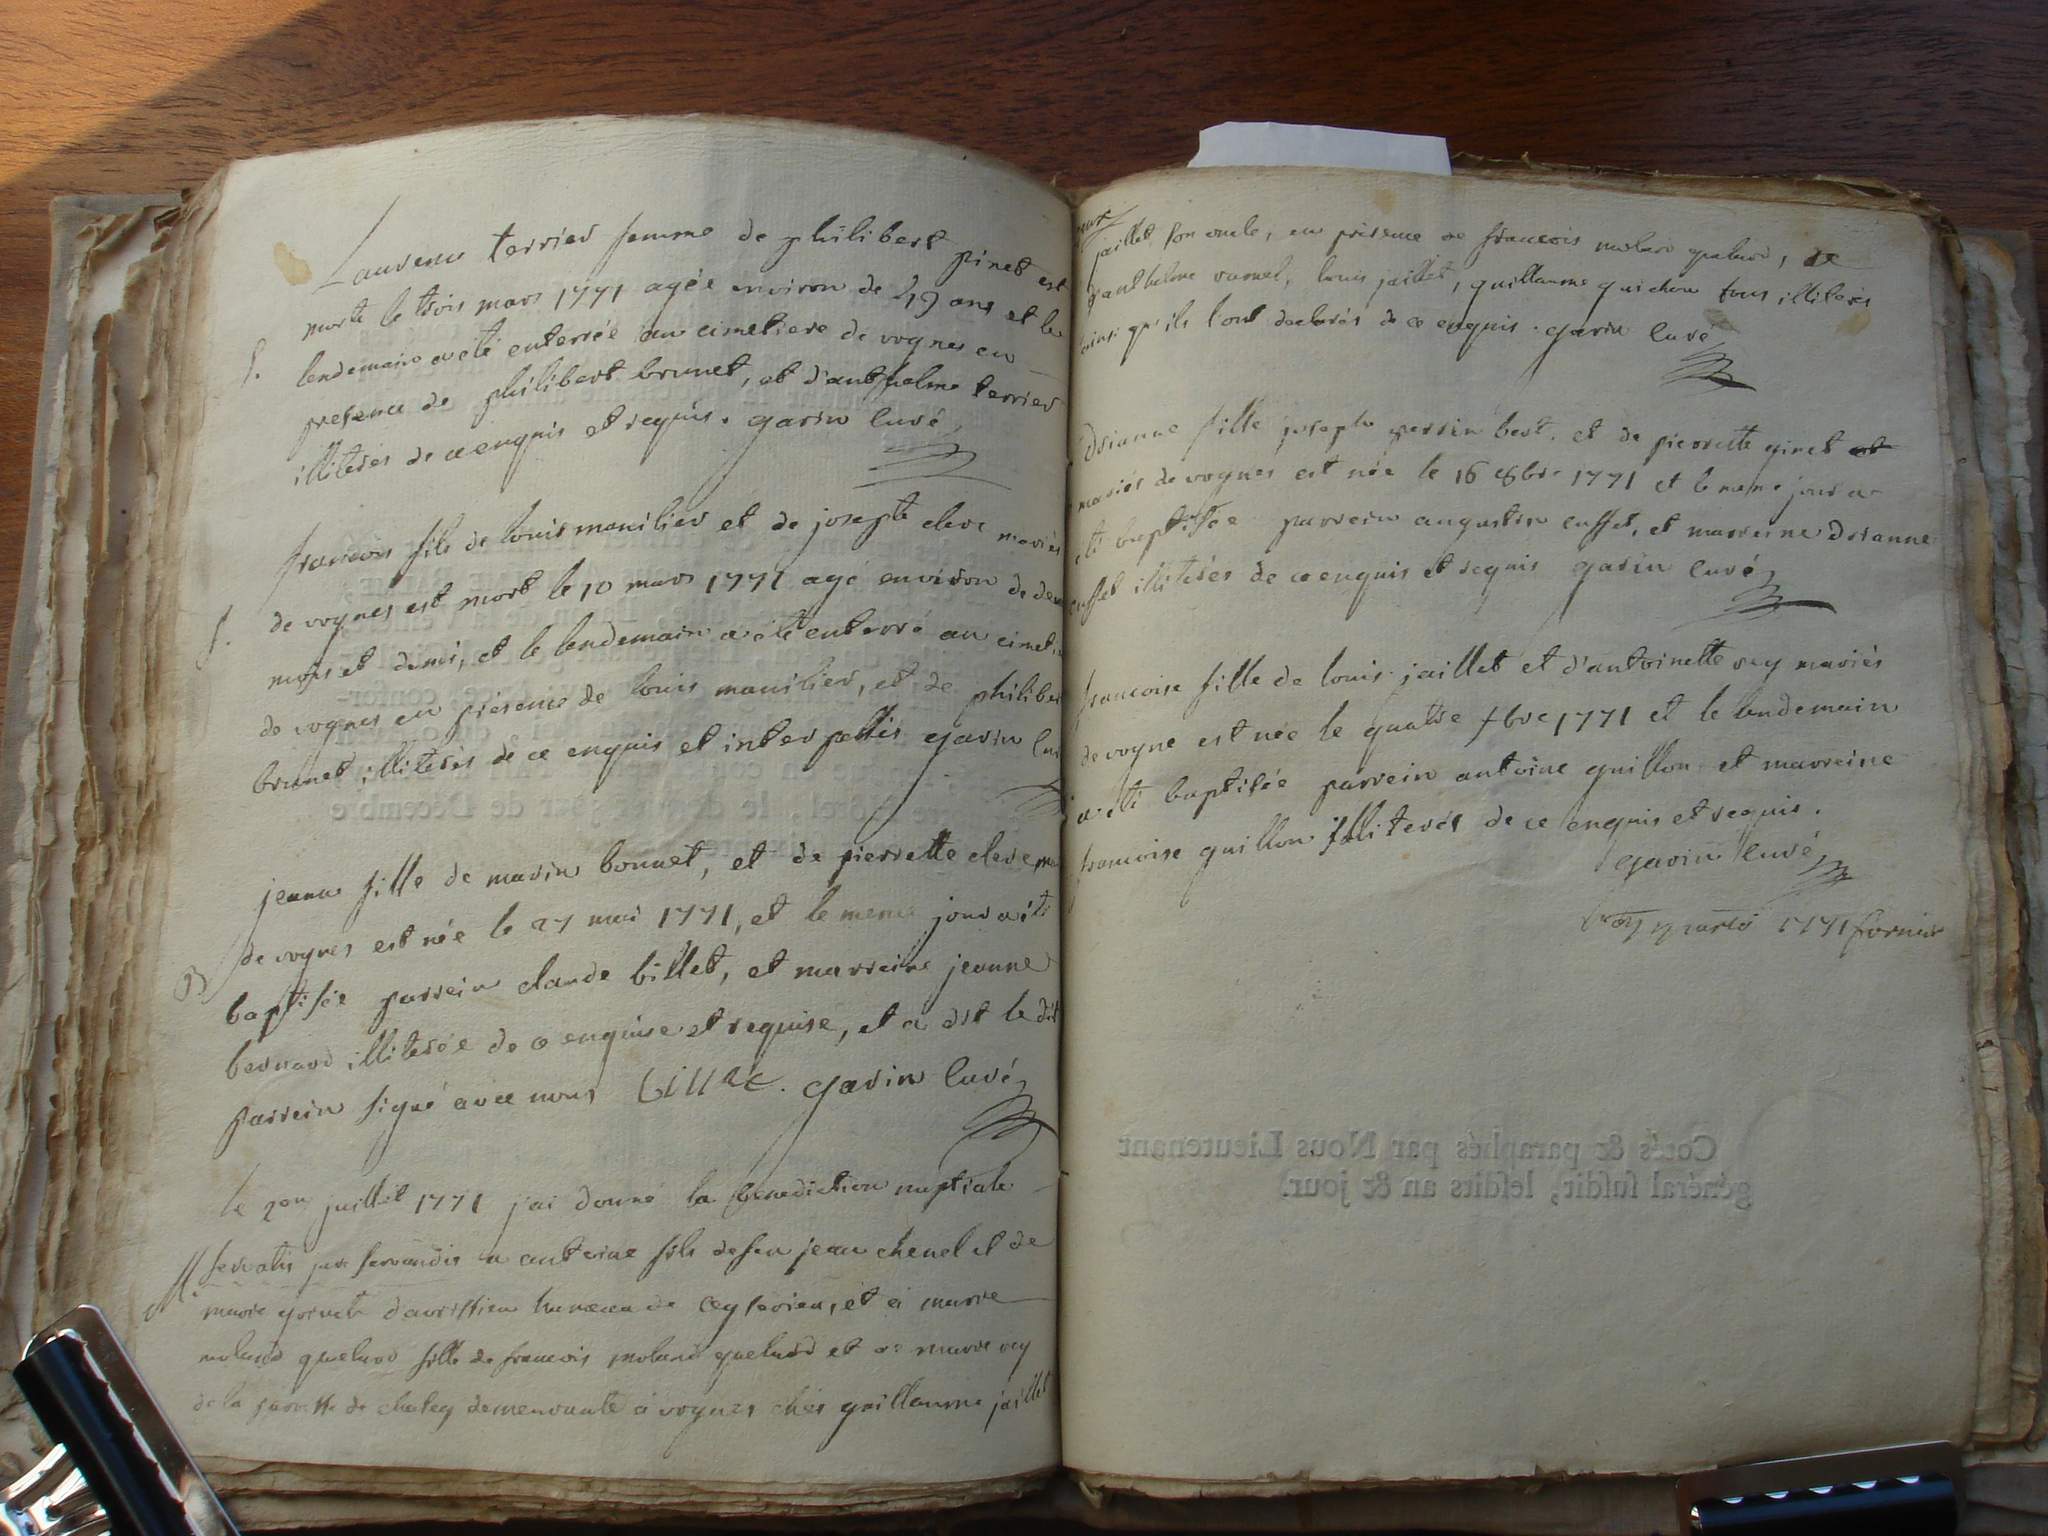 Laurence terrier femme de philibert pinet est
morte le trois mars 1771 agée environ de 49 ans et le
S. lendemain a été enterrée au cimetiere de vognes en
presence de philibert brunet, et d'anthelme terrier
illiterés de ce enquis et requis. garin Curé
francois fils de louis monilier et de josephte clere mariés
S. de vognes est mort le 10 mars 1771 agé environ de deux
mois et demi, et le lendemain a été enterré au cimet.
de vognes en présence de louis monilier, et de philibert
brunet illiterés de ce enquis et interpellés garin Curé
jeanne fille de marin bonnet, et de pierrette clere
de vognes est née le 27 mai 1771, et le meme jour a été
B baptisée parrein claude billet, et marreine jeanne
bernard illiterée de ce enquise et requise, et a dit le dit
parrein signé avec nous billet. garin Curé
le juillet 1771 j'ai donné la benediction nuptiale
M. servatis servandis a antoine fils de feu jean chenel et de
marie d'avrissieu hameau de Ceyserieu, et à marie
molard fille de francois molard et de marie rey
de la paroisse de demeurante à vognes chés guillaume jaillet
jaillet son oncle, en présence de francois molard de
anthelme louis jaillet, guillaume guichon tous illiterés
ainsi qu'ils l'ont declarés de ce enquis. garin Curé
Drianne fille joseph perrin bert. et de pierrette pinet
mariés de vognes est née le 16 8bre 1771 et le meme jour a
été baptisée parrein augustin cusset, et marreine Drianne
cusset illiterés de ce enquis et requis garin Curé
francoise fille de louis jaillet et d'antoinette rey mariés
de vogne est née le quatre 1771 et le lendemain
a été baptisée parrein antoine guillon et marreine
francoise guillon illiterés de ce enquis et requis.
garin Curé
1771 fornier
Cotés & paraphés par Nous Lieutenant
général susdit, lesdits an & jour.